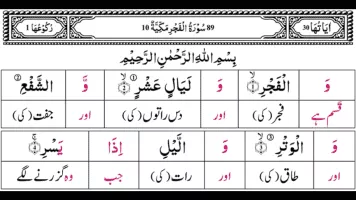 اٰیَاتُهَا 30 89 سُوْرَةُ الْفَجْرِ مَكِّيَّةٌ 10 رُكُوْعُهَا 1
بِسْمِ اللّٰهِ الرَّحْمٰنِ الرَّحِيْمِ
وَ الْفَجْرِۙ ۱ وَ لَيَالٍ عَشْرٍۙ ۲ وَّ الشَّفْعِ
قسم ہے فجر (کی) اور دس راتوں (کی) اور جفت (کی)
وَ الْوَتْرِۙ ۳ وَ الَّيْلِ اِذَا يَسْرِۚ ۴
اور طاق (کی) اور رات (کی) جب وہ گزرنے لگے